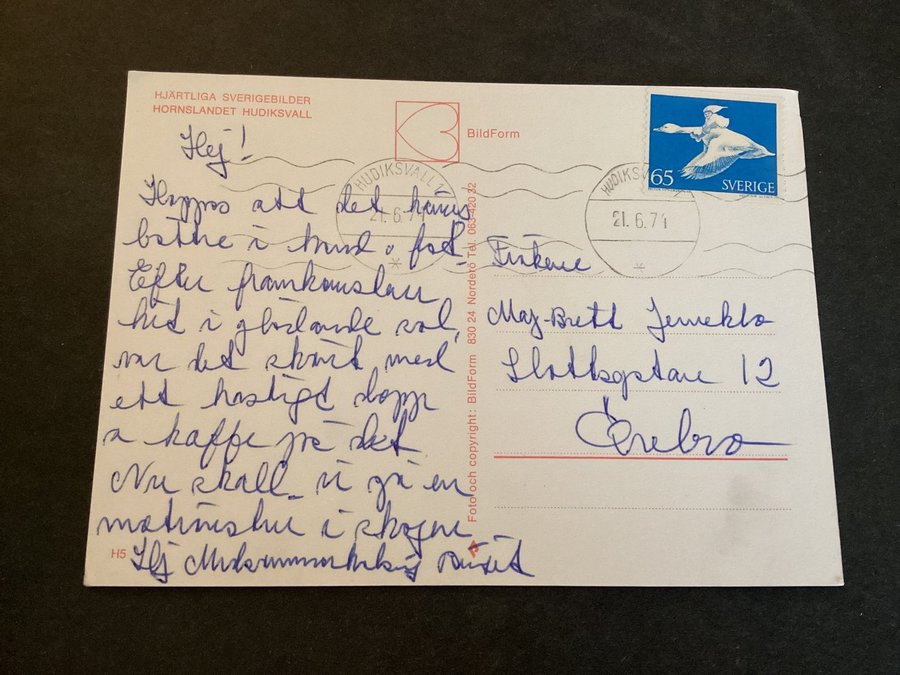 HJÄRTLIGA SVERIGEBILDER
HORNSLANDET HUDIKSVALL
BildForm
65
SVERIGE
HUDIKSVALL 1
21.6.74
HUDIKSV
21.6.74
Hej!
Hoppas att det känns
bättre i hand o fot
Efter framkomsten
hit i glödande sol,
var det skönt med
ett hastigt dopp
o kaffe på det
Nu skall vi gå en
i skogen
Hej
Fröken
Maj-Britt
Slottsgatan 12
Örebro
Foto och copyright: BildForm 830 24 Nordetö Tel. 063-420 32
H5